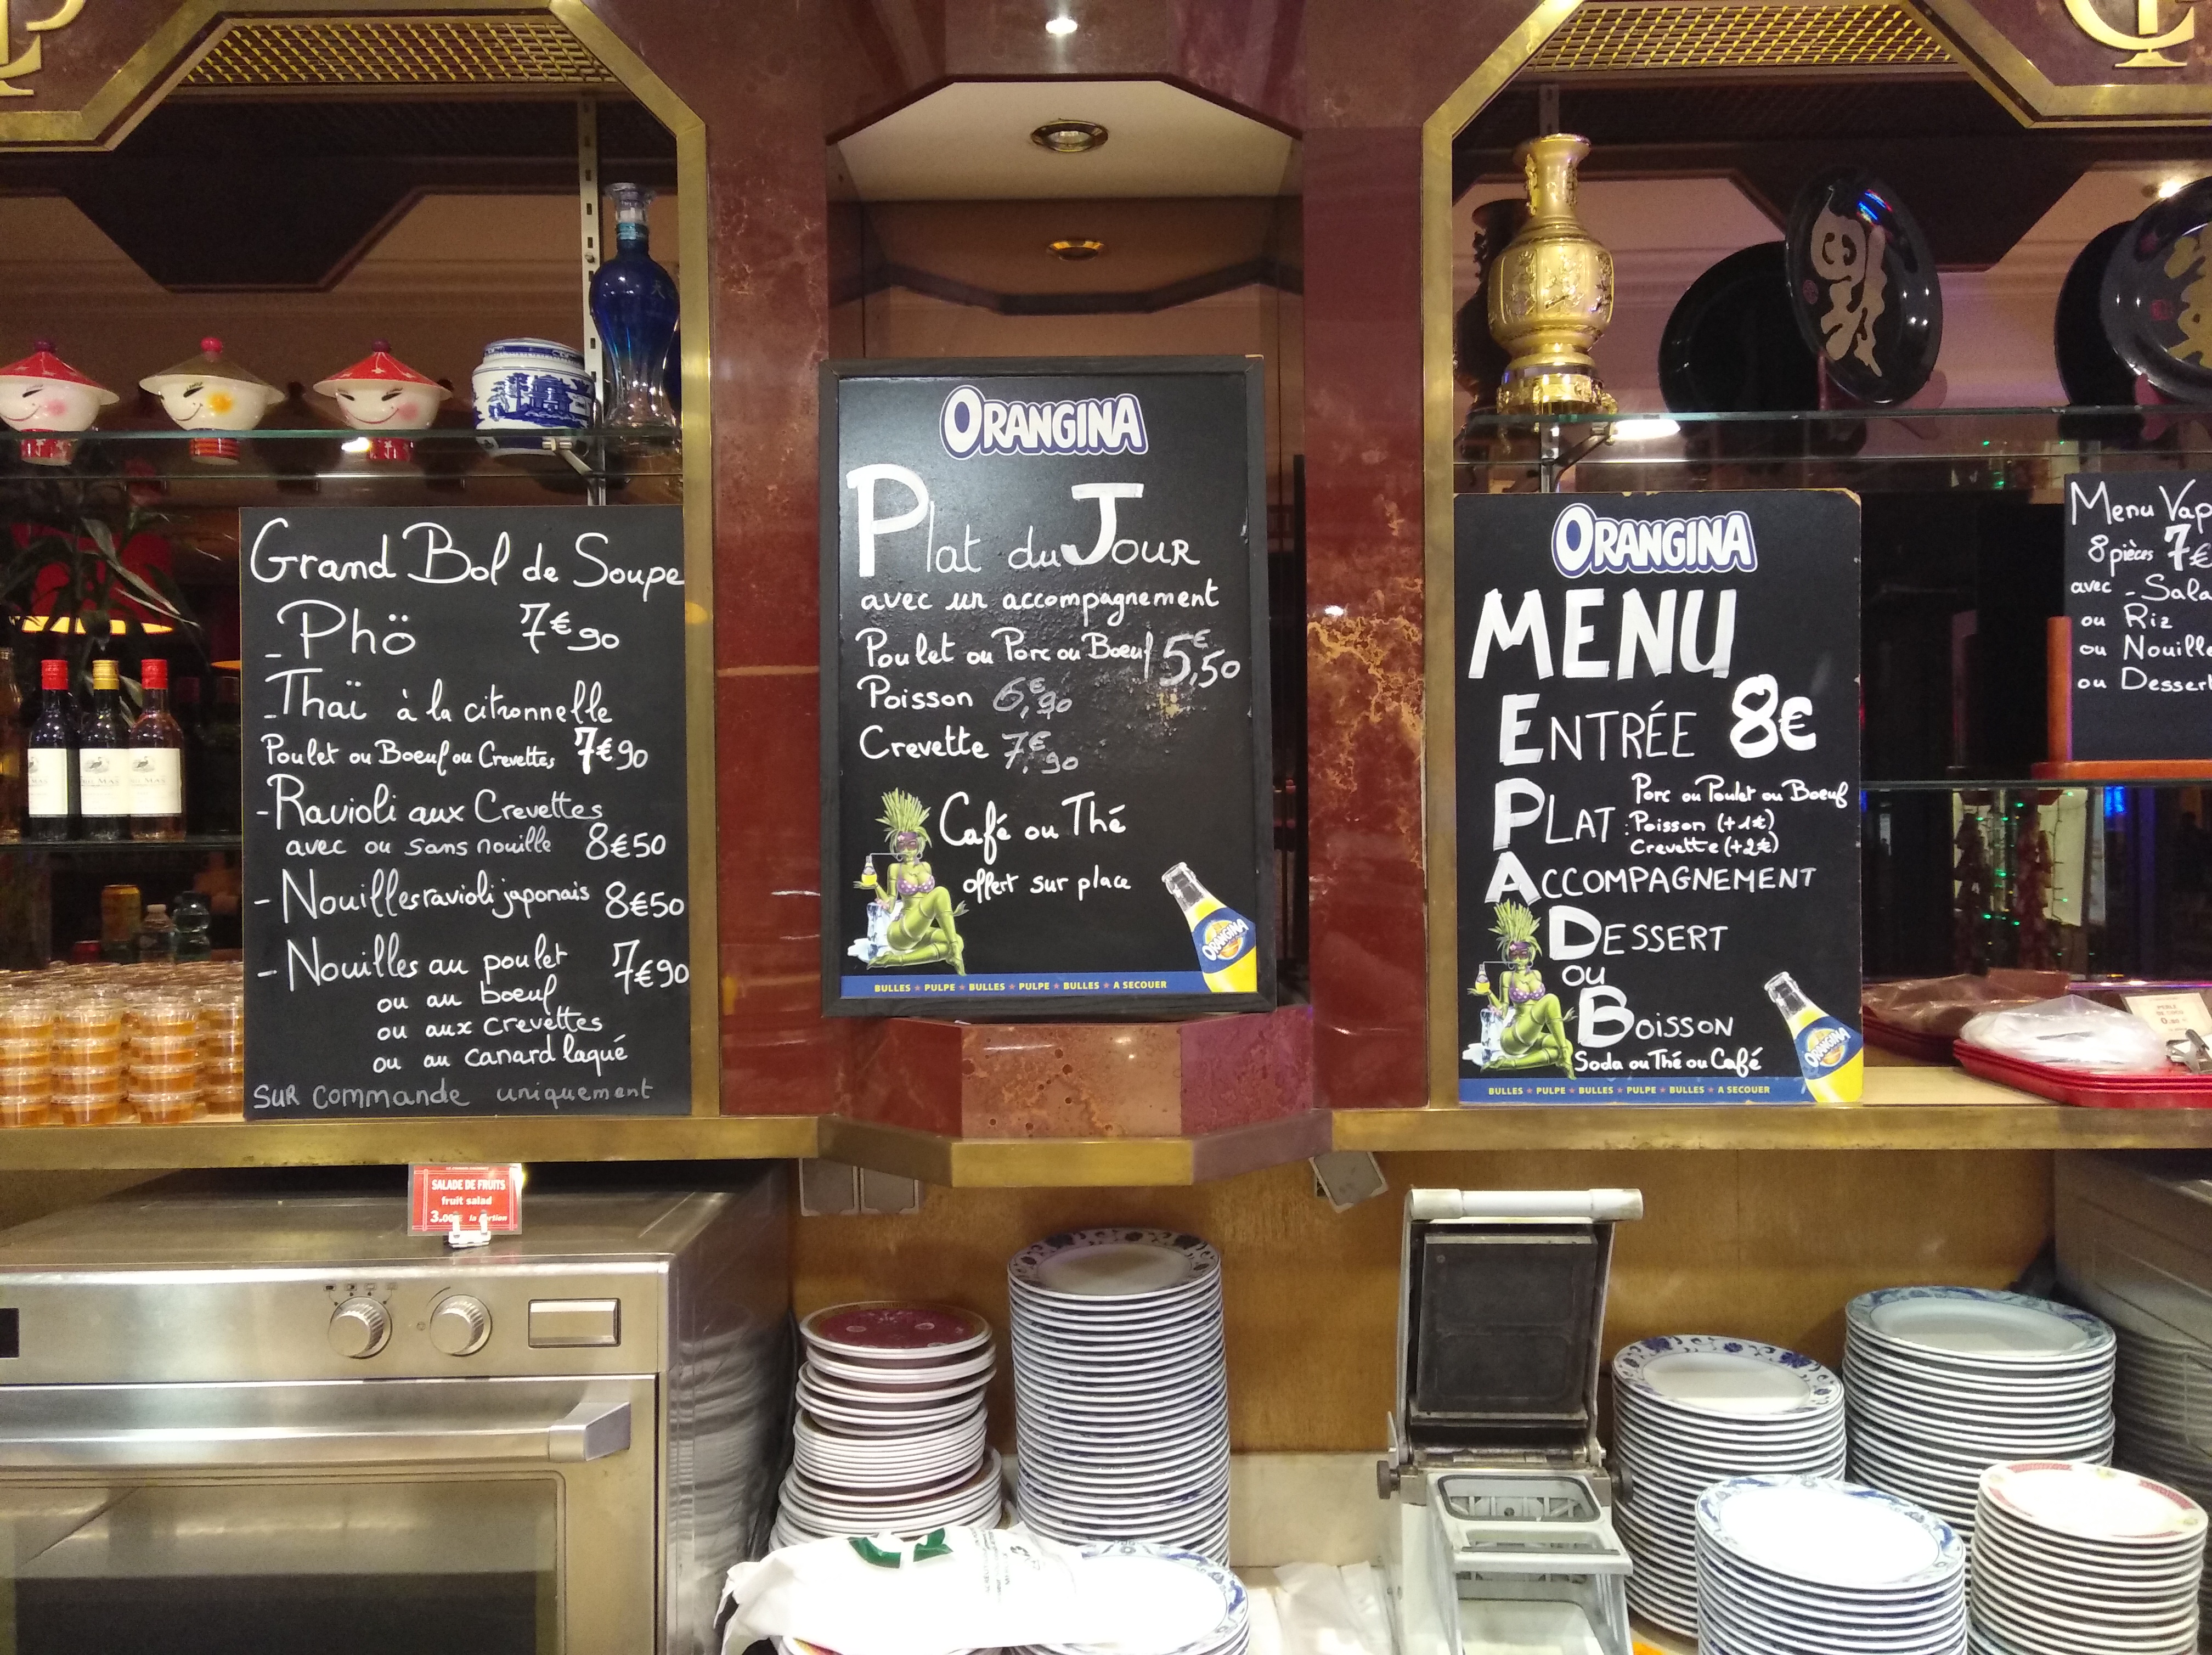 Grand Bol de Soupe
- Phö 7€90
- Thaï à la citronnelle
Poulet ou Boeuf ou Crevettes 7€90
- Ravioli aux Crevettes
avec ou sans nouille 8€50
- Nouilles ravioli japonais 8€50
- Nouilles au poulet 7€90
ou au boeuf
ou aux crevettes
ou au canard laqué
SUR COMMANDE uniquement
ORANGINA
Plat du JOUR
avec un accompagnement
Poulet ou Porc ou Boeuf 5€,50
Poisson 6€,90
Crevette 7€,90
Café ou Thé
offert sur place
ORANGINA
BULLES ★ PULPE ★ BULLES ★ PULPE ★ BULLES ★ A SECOUER
ORANGINA
MENU
ENTRÉE 8€
PLAT : Porc ou Poulet ou Boeuf
Poisson (+1€)
Crevette (+2€)
ACCOMPAGNEMENT
DESSERT
OU
BOISSON
Soda ou Thé ou Café
ORANGINA
BULLES ★ PULPE ★ BULLES ★ PULPE ★ BULLES ★ A SECOUER
Menu Vap
8 pièces 7€
avec - Sala
ou Riz
ou Nouille
ou Dessert
SALADE DE FRUITS
fruit salad
3.00€ la portion